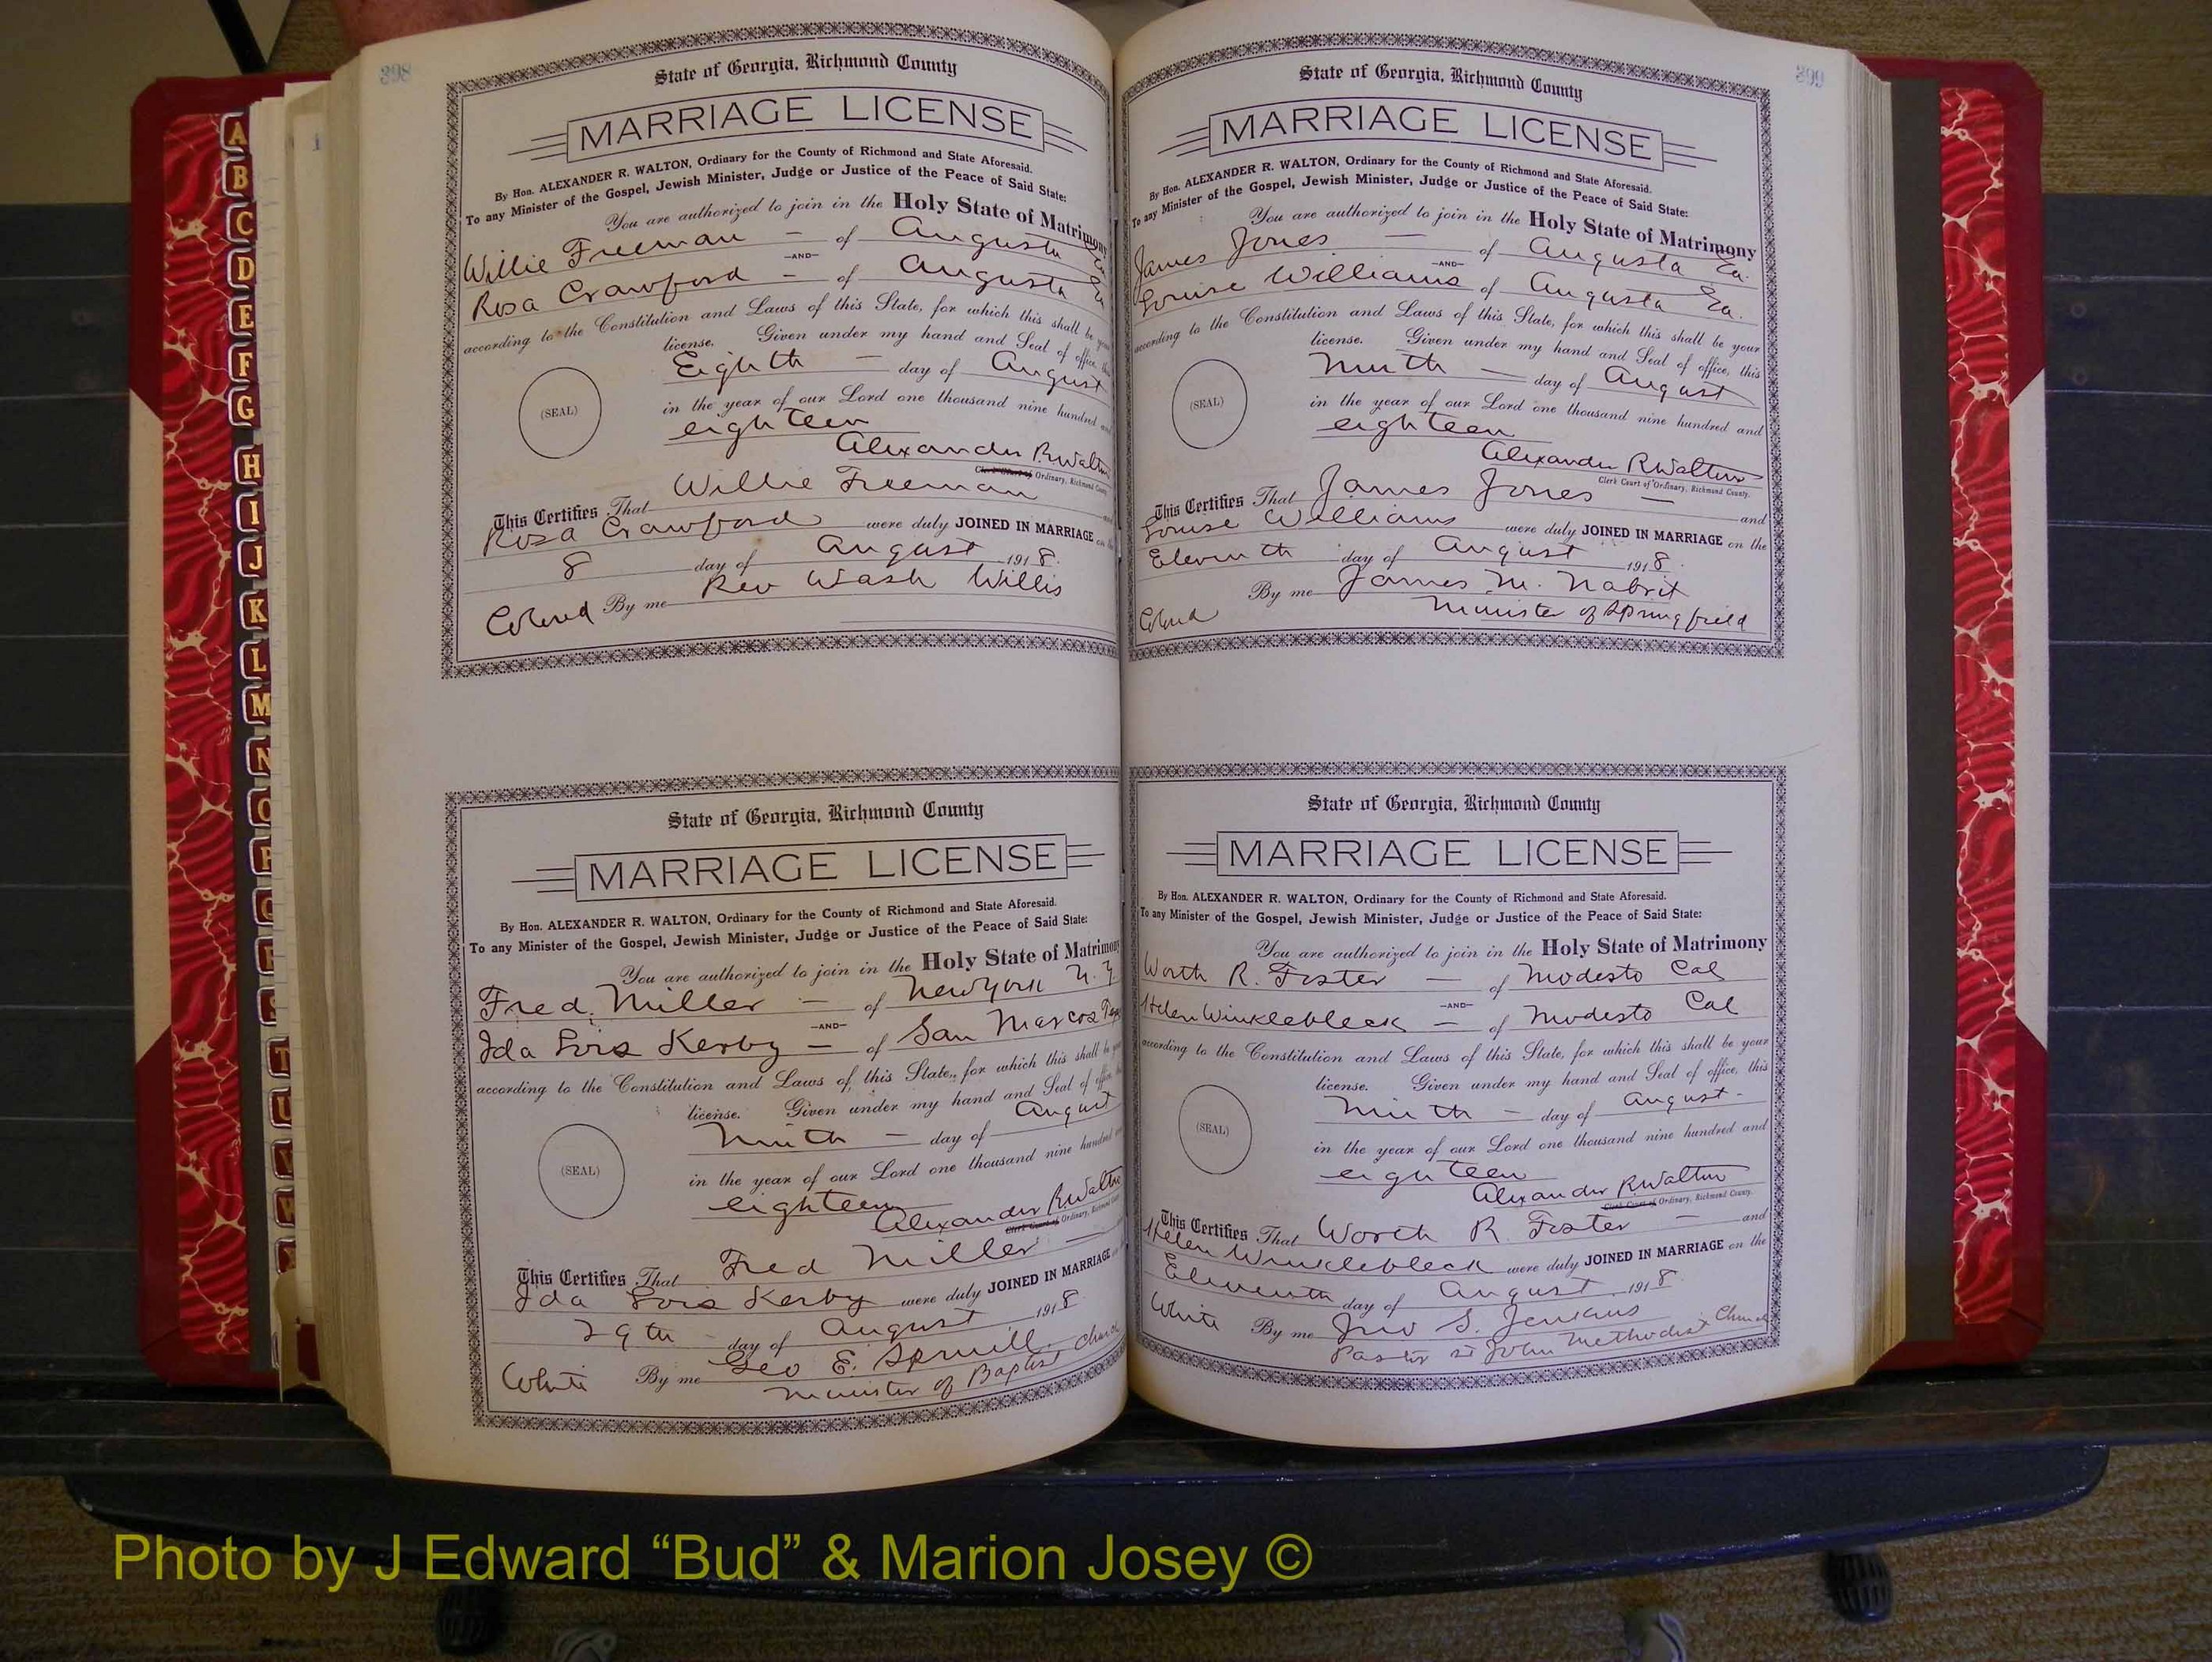 398
State of Georgia, Richmond County
MARRIAGE LICENSE
By Hon. ALEXANDER R. WALTON, Ordinary for the County of Richmond and State Aforesaid.
To any Minister of the Gospel, Jewish Minister, Judge or Justice of the Peace of Said State:
You are authorized to join in the Holy State of Matrimony
Willie Freeman — of Augusta Ga
—AND—
Rosa Crawford — of Augusta Ga
according to the Constitution and Laws of this State, for which this shall be your
license. Given under my hand and Seal of office, this
Eighth — day of August
(SEAL)
in the year of our Lord one thousand nine hundred and
eighteen
Alexander R Walton
Clerk Court of Ordinary, Richmond County
This Certifies That Willie Freeman
Rosa Crawford were duly JOINED IN MARRIAGE on the
8 day of August 1918.
Colored By me Rev Wash Willis
State of Georgia, Richmond County
MARRIAGE LICENSE
By Hon. ALEXANDER R. WALTON, Ordinary for the County of Richmond and State Aforesaid.
To any Minister of the Gospel, Jewish Minister, Judge or Justice of the Peace of Said State:
You are authorized to join in the Holy State of Matrimony
Fred Miller — of New York N.Y.
—AND—
Ida Lois Kerby — of San Marcos Texas
according to the Constitution and Laws of this State, for which this shall be your
license. Given under my hand and Seal of office
Ninth — day of August
(SEAL)
in the year of our Lord one thousand nine hundred and
eighteen
Alexander R. Walton
Clerk Court of Ordinary, Richmond County
This Certifies That Fred Miller —
Ida Lois Kerby were duly JOINED IN MARRIAGE
29th — day of August 1918
White By me Geo E. Spruill
Minister of Baptist Church
399
State of Georgia, Richmond County
MARRIAGE LICENSE
By Hon. ALEXANDER R. WALTON, Ordinary for the County of Richmond and State Aforesaid.
To any Minister of the Gospel, Jewish Minister, Judge or Justice of the Peace of Said State:
You are authorized to join in the Holy State of Matrimony
James Jones — of Augusta Ga.
—AND—
Louise Williams of Augusta Ga.
according to the Constitution and Laws of this State, for which this shall be your
license. Given under my hand and Seal of office, this
Ninth — day of August
(SEAL)
in the year of our Lord one thousand nine hundred and
eighteen
Alexander R Walton
Clerk Court of Ordinary, Richmond County.
This Certifies That James Jones — and
Louise Williams were duly JOINED IN MARRIAGE on the
Eleventh day of August 1918.
By me James M. Nabrit
Colored Minister of Springfield
State of Georgia, Richmond County
MARRIAGE LICENSE
By Hon. ALEXANDER R. WALTON, Ordinary for the County of Richmond and State Aforesaid.
To any Minister of the Gospel, Jewish Minister, Judge or Justice of the Peace of Said State:
You are authorized to join in the Holy State of Matrimony
Worth R. Foster — of Modesto Cal
—AND—
Helen Winklebleck — of Modesto Cal
according to the Constitution and Laws of this State, for which this shall be your
license. Given under my hand and Seal of office, this
Ninth — day of August -
(SEAL)
in the year of our Lord one thousand nine hundred and
eighteen
Alexander R. Walton
Clerk Court of Ordinary, Richmond County.
This Certifies That Worth R. Foster — and
Helen Winklebleck were duly JOINED IN MARRIAGE on the
Eleventh day of August 1918.
White By me Jno S. Jenkins
Pastor St John Methodist Church
A
B
C
D
E
F
G
H
I
J
K
L
M
N
O
P
Q
R
S
T
U
V
W
Photo by J Edward “Bud” & Marion Josey ©